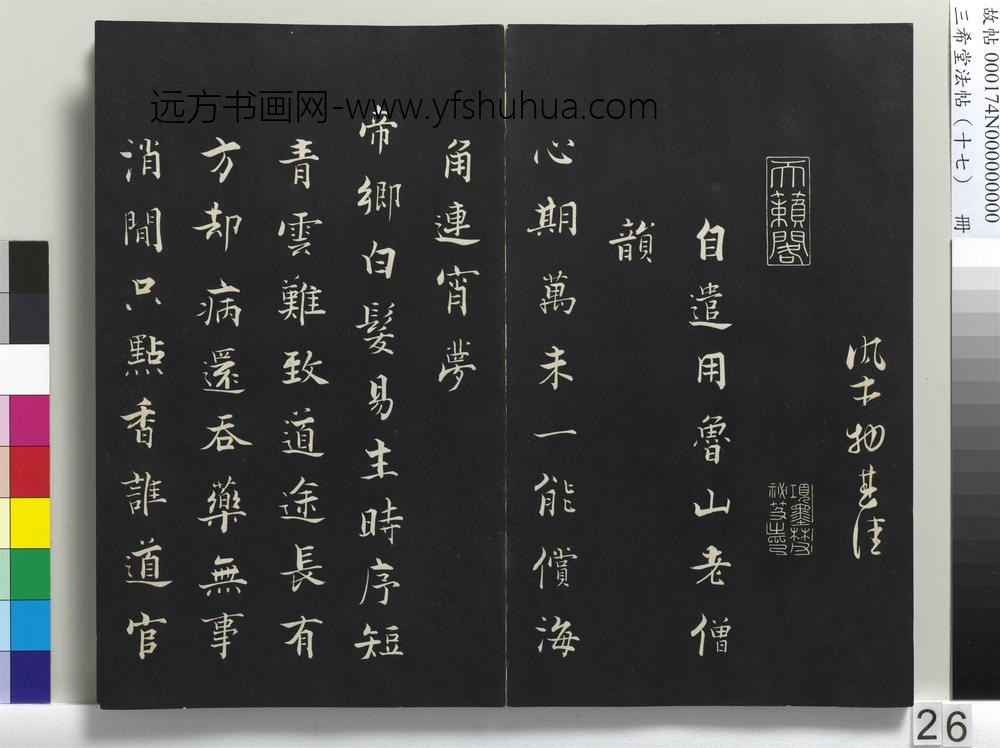 故帖 000174N000000000
三希堂法帖(十七) 冊
远方书画网-www.yfshuhua.com
風土物甚佳
天籟閣
項墨林
祕笈之印
自遣用魯山老僧
韻
心期萬未一能償海
角連宵夢
帝鄉白髮易生時序短
青雲難致道途長有
方却病還吞藥無事
消閒只點香誰道官
26